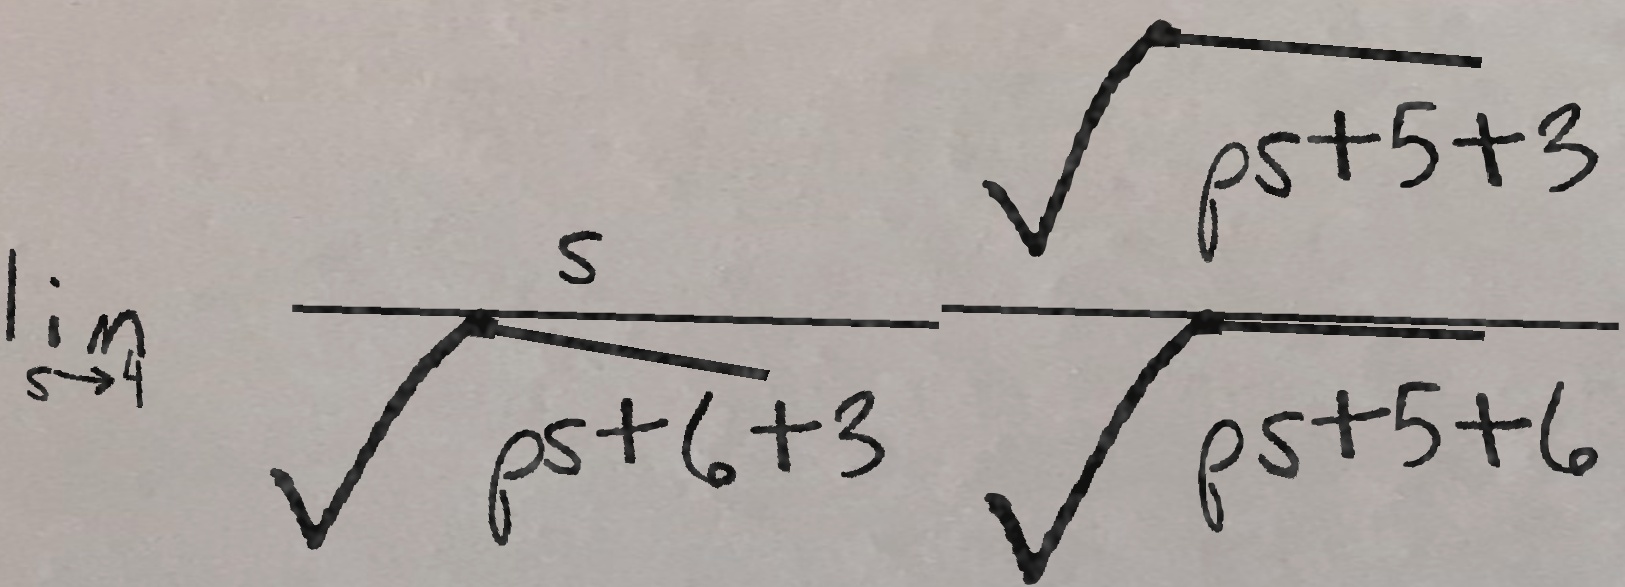 \lim_{s \to 4} \frac{s}{\sqrt{ps+6}+3} \frac{\sqrt{ps+5}+3}{\sqrt{ps+5}+6}